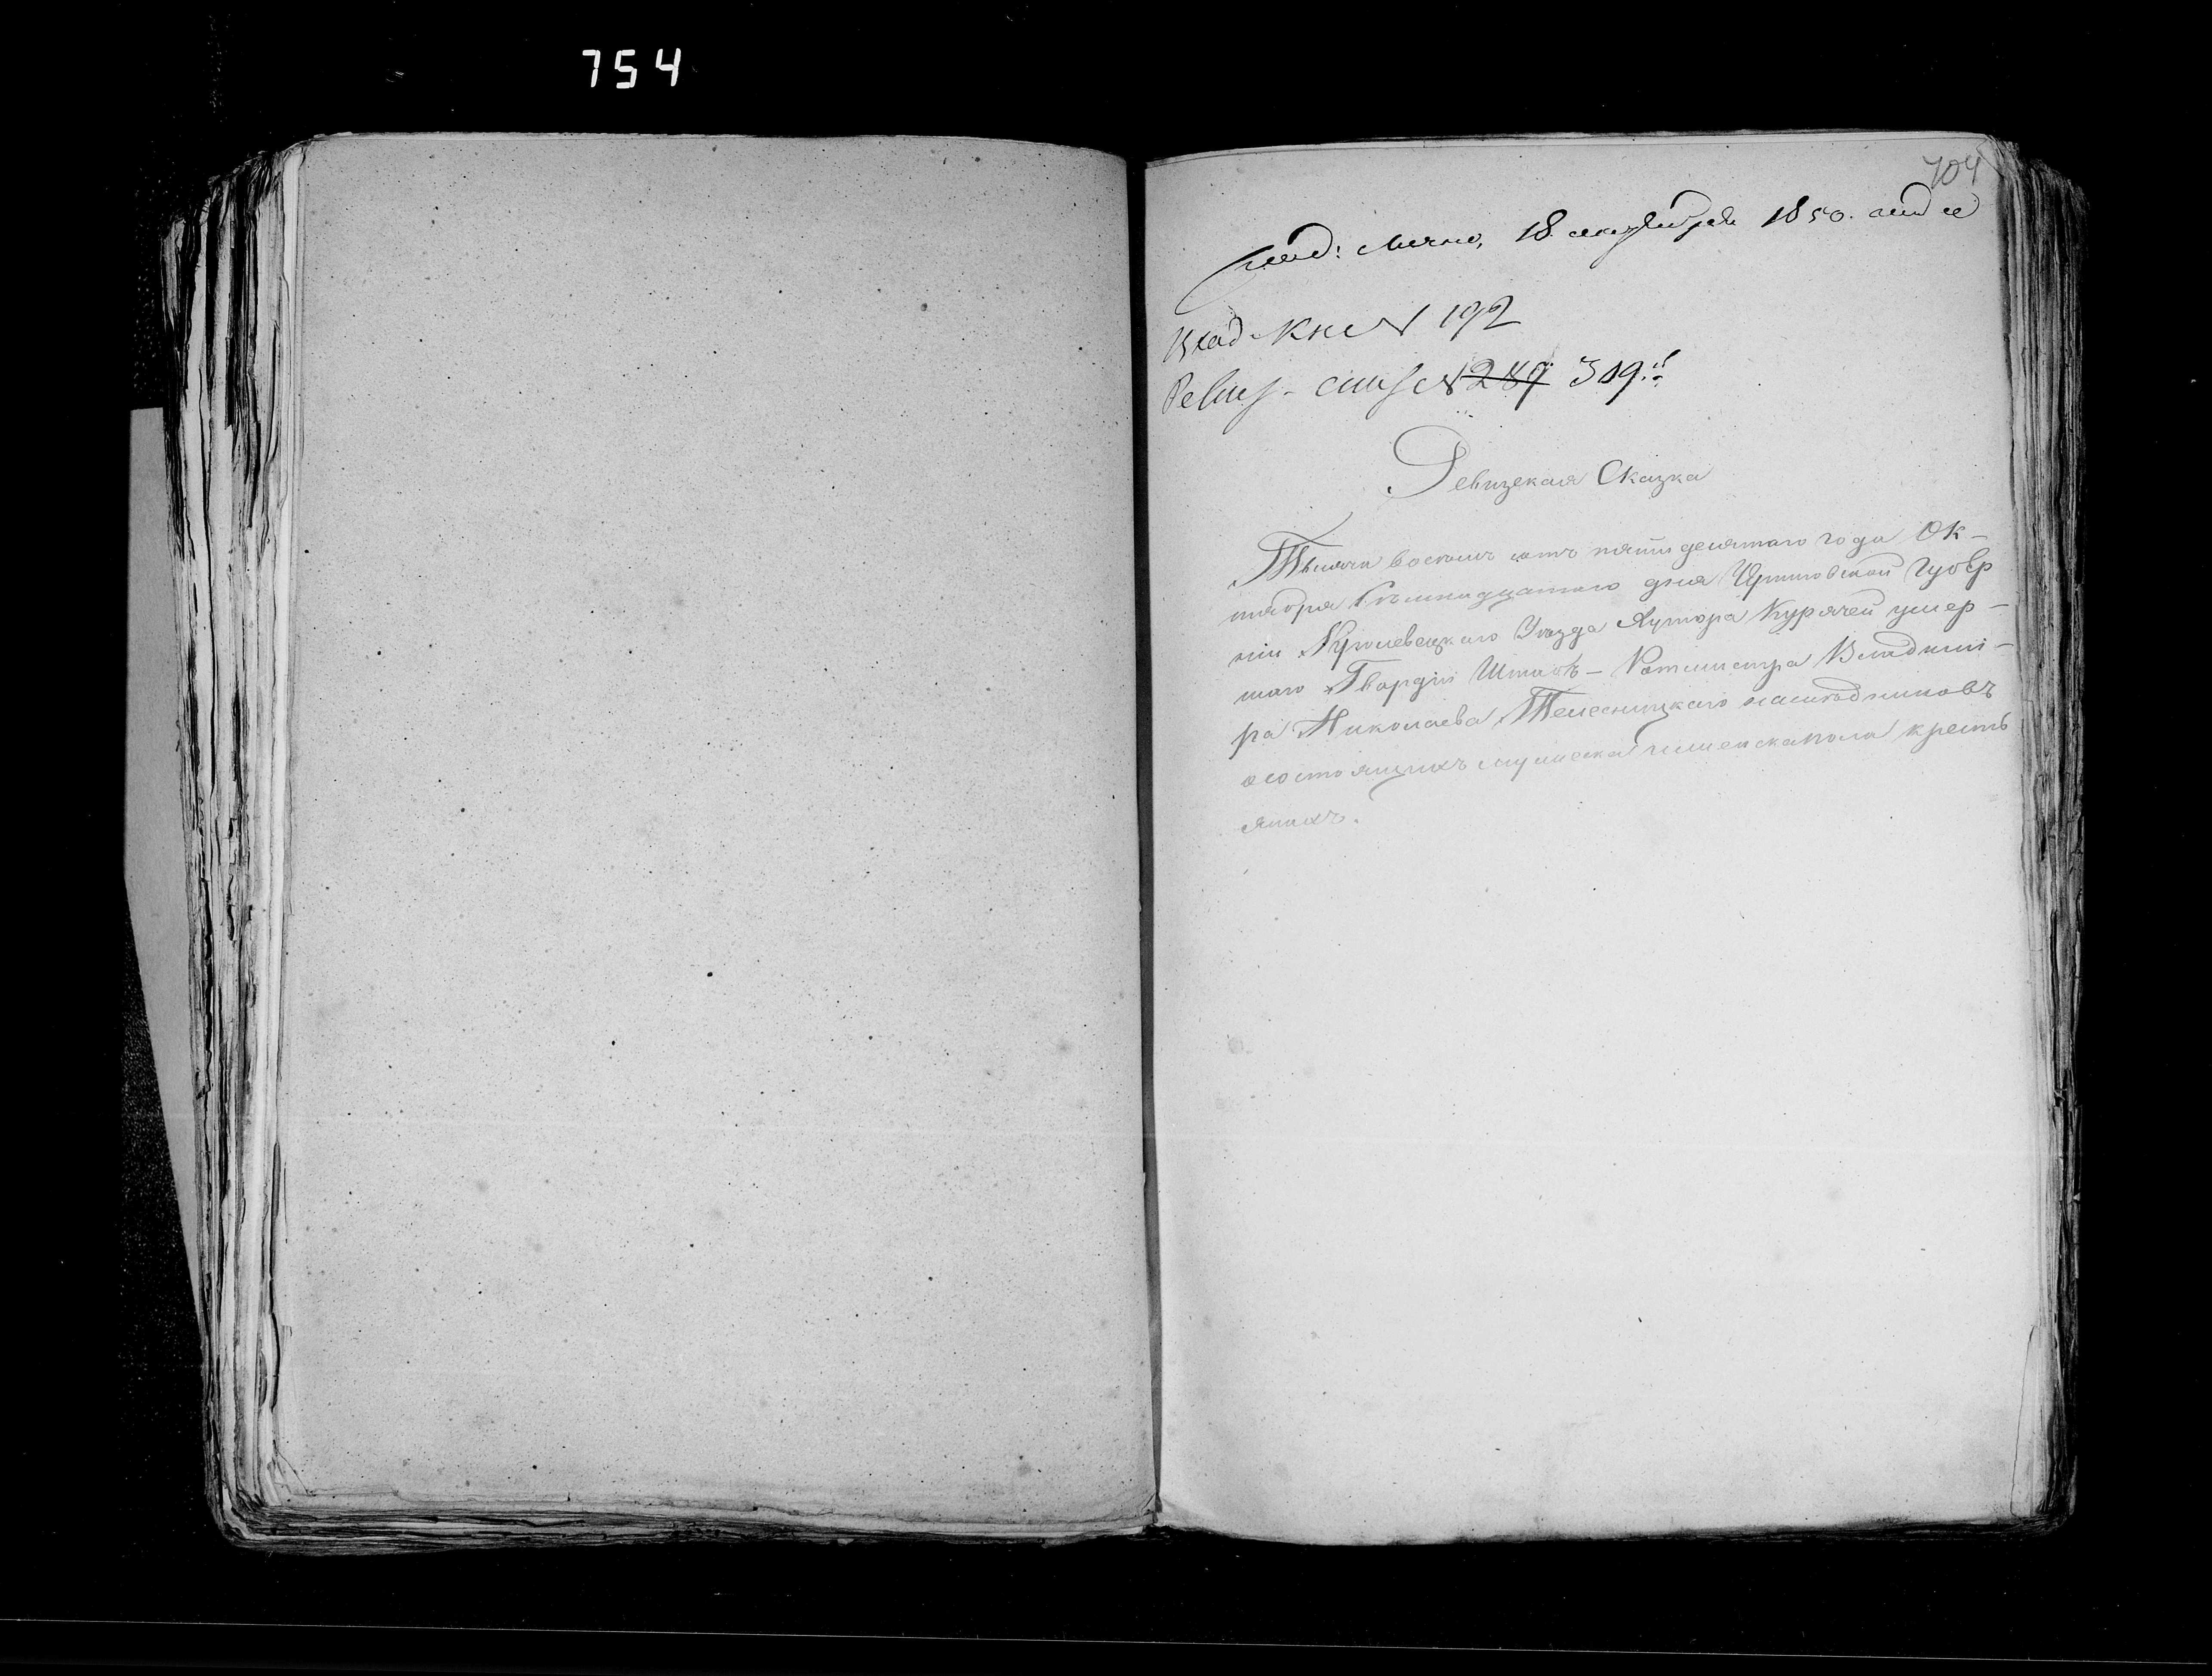 754
704
под: лично, 18 октября 1850. года
Влад Кн № 192
Ревиз - спис № 289 319.
Ревизская Сказка
Тысяча восемъ сотъ пятидесятаго года Ок-
тября восемнадцатаго дня Черниговской Губер
ніи Кролевецкаго Уезда Хутора Курячей умер-
шаго Гвардіи Штабъ - Ротмистра Владими-
ра Николаева наследниковъ
о состоящихъ мужеска и женска пола кресть
янахъ.